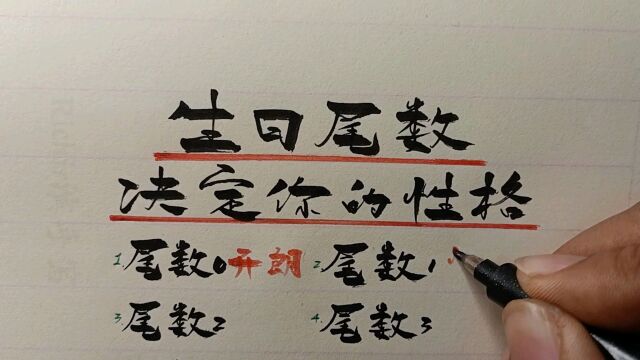 生日尾数
决定你的性格
1.尾数0开朗 2.尾数1
3.尾数2 4.尾数3